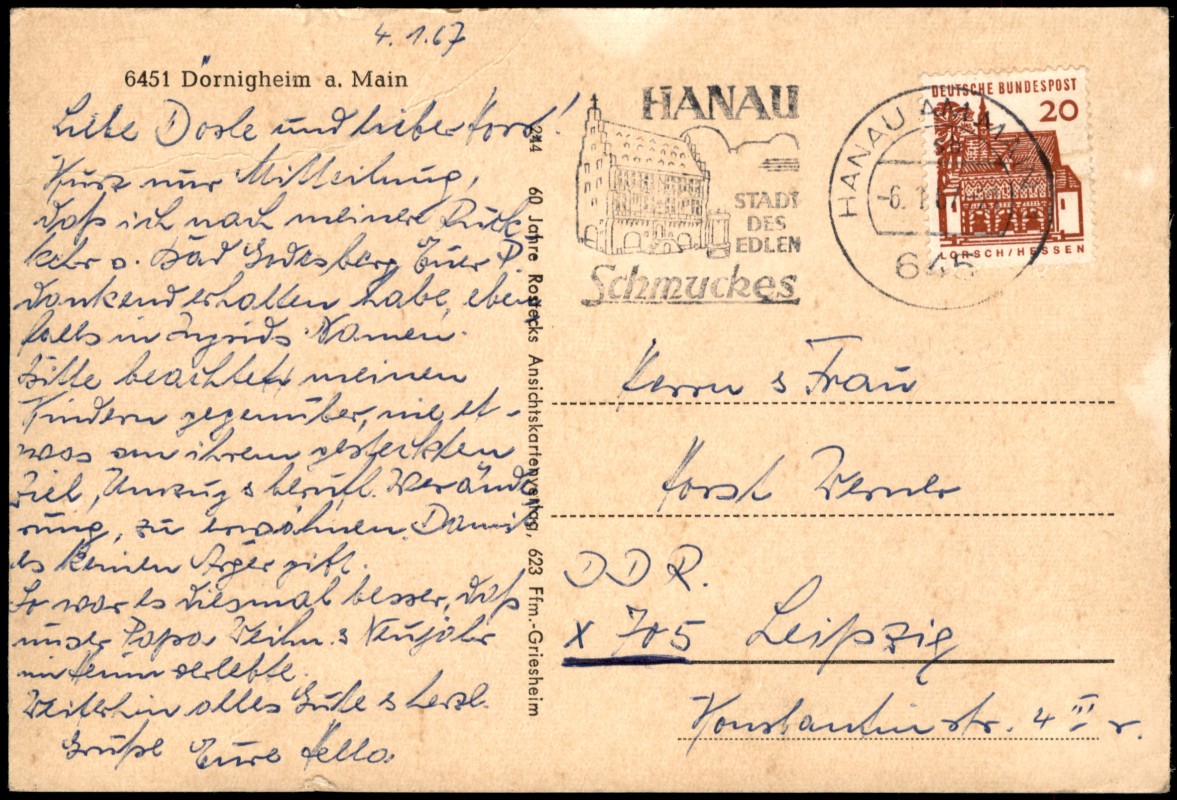 4.1.67
6451 Dörnigheim a. Main
Liebe Dorle und lieber Horst!
Kurz nur Mitteilung,
daß ich nach meiner Rück
kehr v. Bad Godesberg Euer P.
dankend erhalten habe, eben
falls in Ingrids Namen.
Bitte beachtet meinen
Kindern gegenüber, nie et-
was von ihrem gesteckten
Ziel, Umzug & berufl. Verände
rung, zu erwähnen. Damit
es keinen Ärger gibt.
So war es diesmal besser, daß
unser Papa Weihn. & Neujahr
verlebte.
Weiterhin alles Gute & herzl.
Grüße Eure Hella
244 60 Jahre Rostecks Ansichtskartenverlag, 623 Ffm.-Griesheim
HANAU
STADT
DES
EDLEN
Schmuckes
HANAU AM MAIN
-6.1.67
645
DEUTSCHE BUNDESPOST
20
LORSCH/HESSEN
Herrn & Frau
Horst Werner
DDR.
X 705 Leipzig
Konstantinstr. 4 III r.